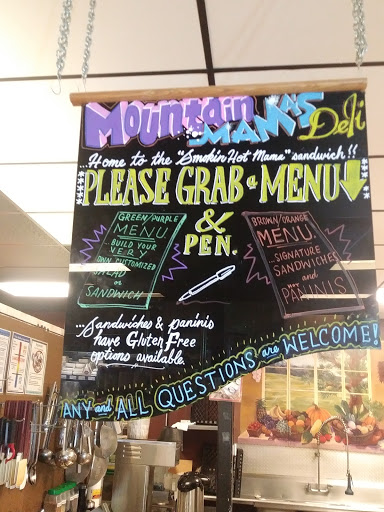 Mountain
MAMA'S
Deli
...Home to the "Smokin Hot Mama" sandwich!!
PLEASE GRAB a MENU
& PEN.
GREEN/PURPLE
MENU
BUILD YOUR
VERY
OWN CUSTOMIZED
SALAD
or
SANDWICH
BROWN/ORANGE
MENU
...SIGNATURE
SANDWICHES
and
HOT
PANINIS
...Sandwiches & paninis
have Gluten Free
options available.
ANY and ALL QUESTIONS are WELCOME!